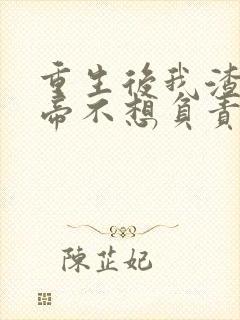 重生後我渣
帝不想負責
陳芷妃